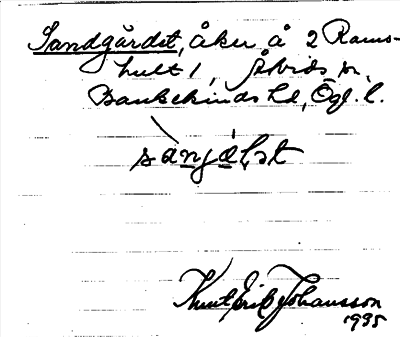 Sandgärdet, åker å 2 Rams-
hult 1, Åtvids sn,
Bankekinds hd, Ögl. l.
sanjä̀lst
Knut Erik Johansson
1935